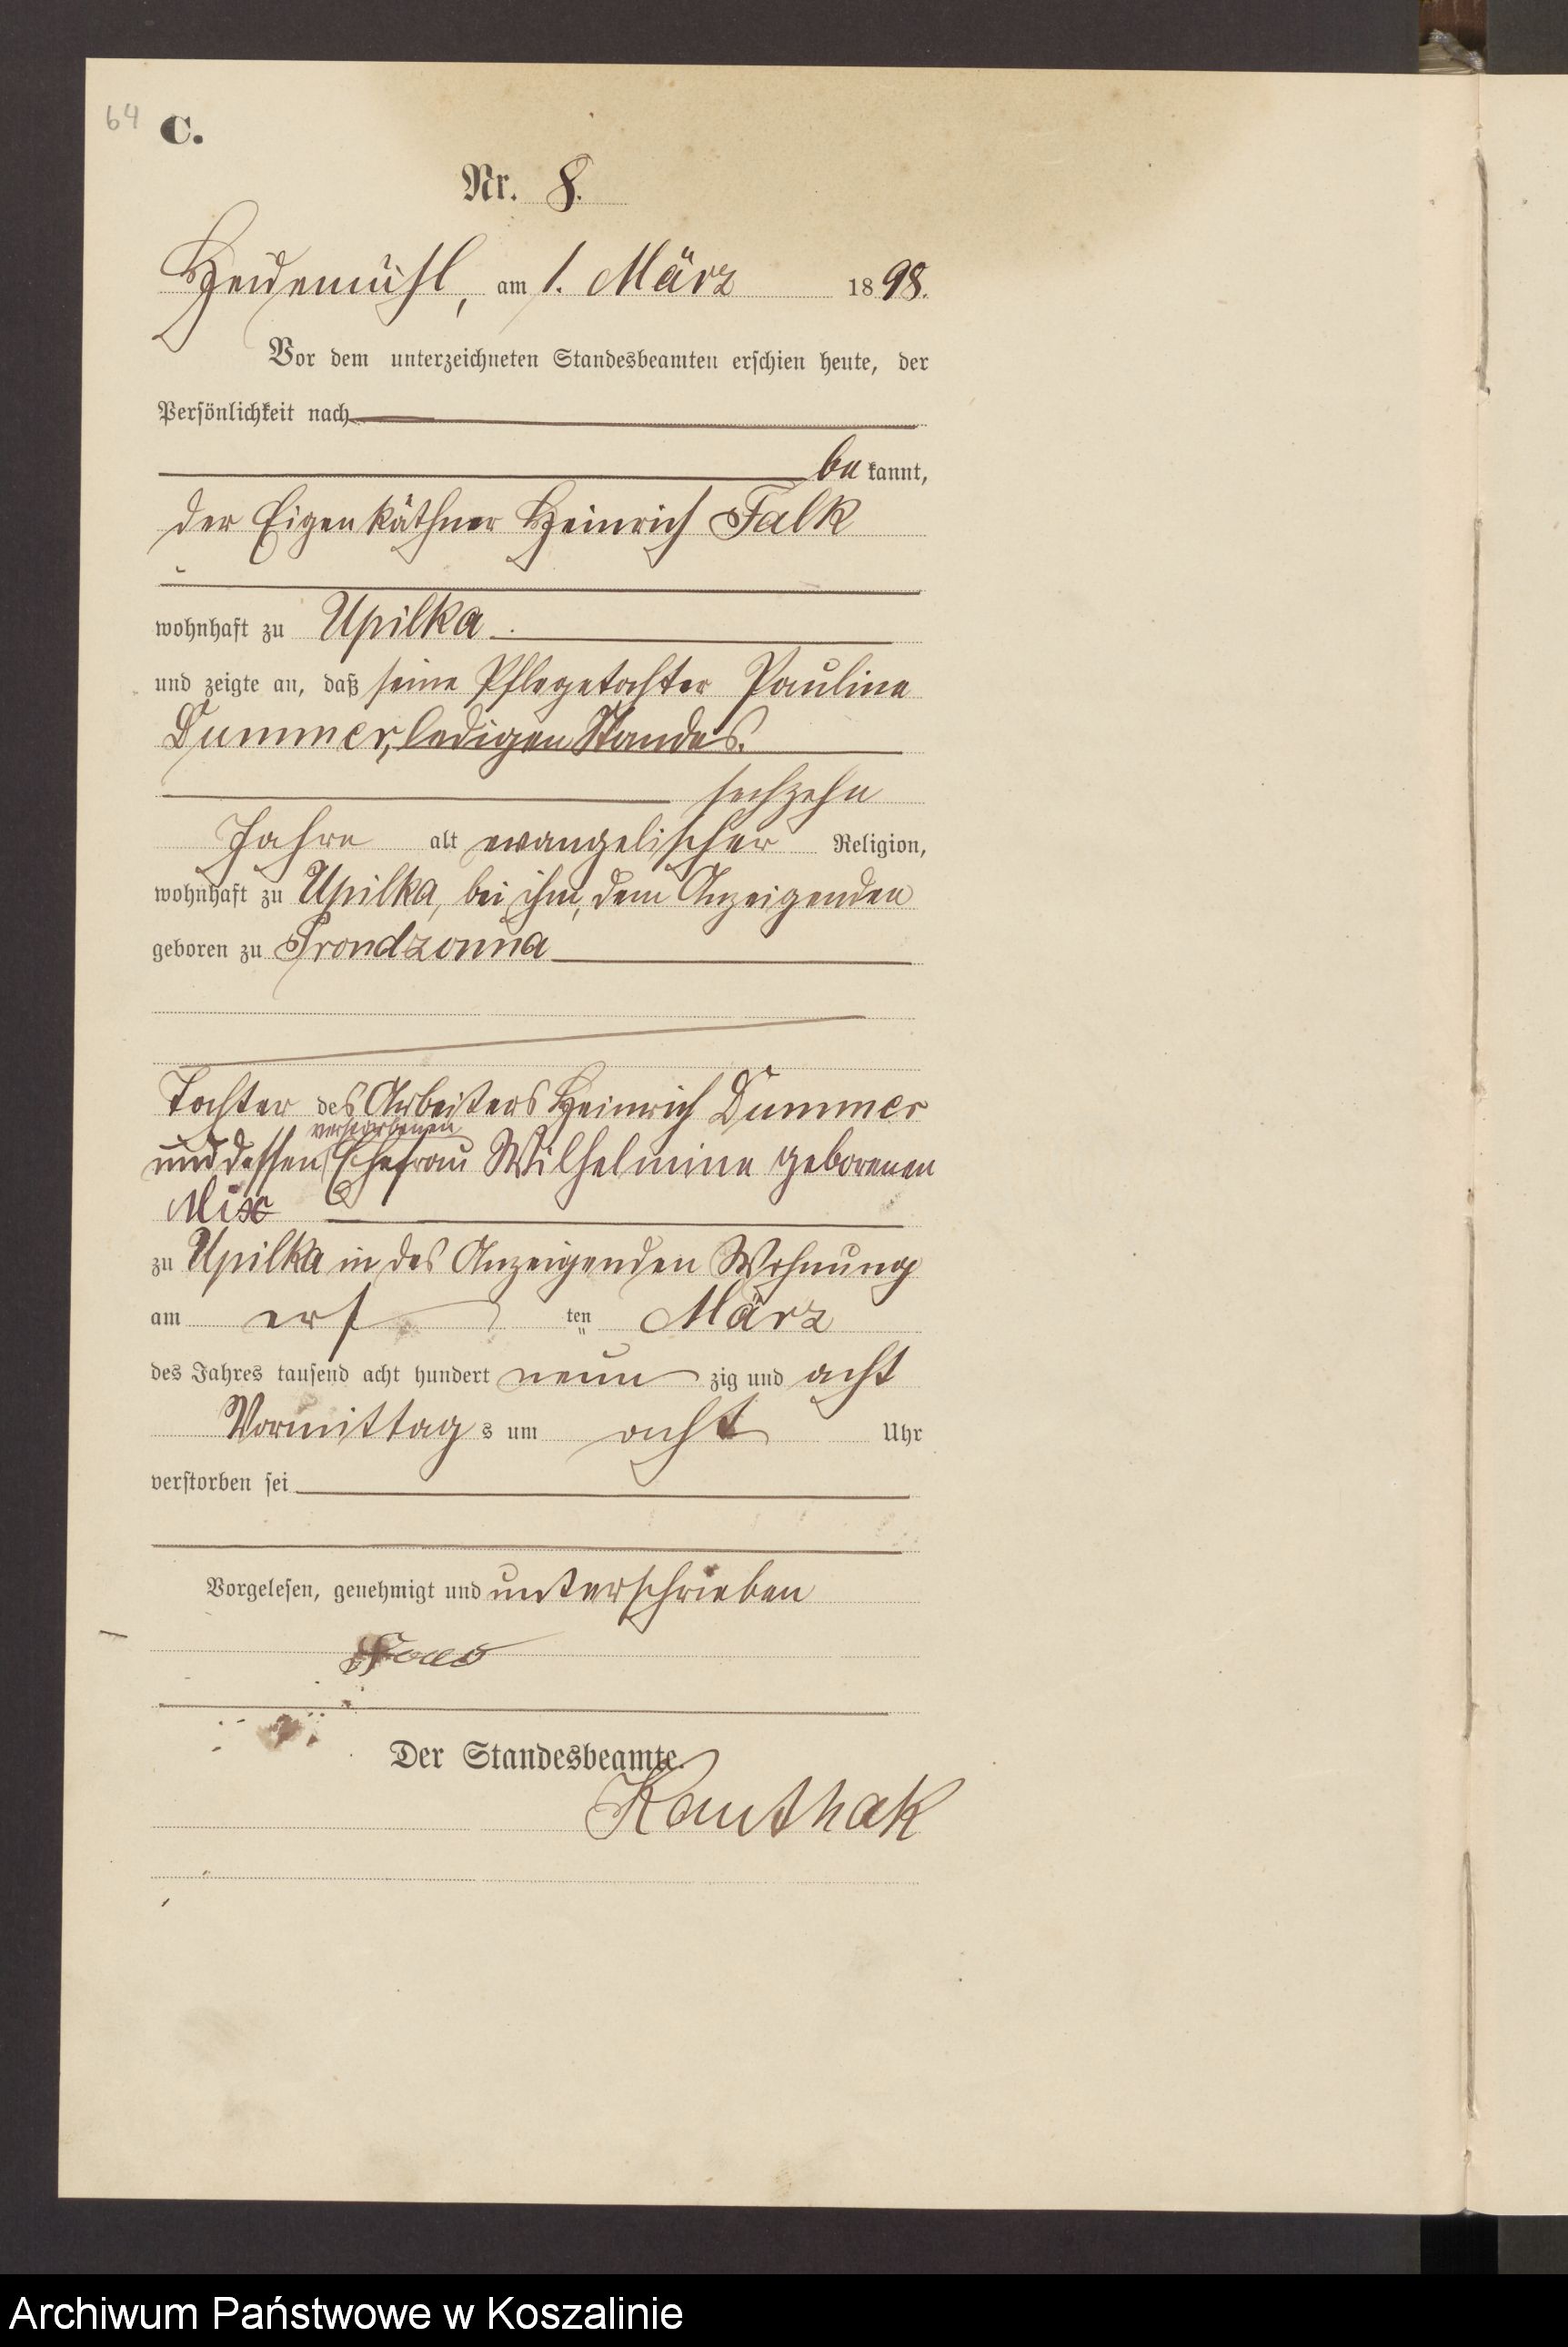 64
C.
Nr. 8.
Heidemühl, am 1. März 1898.
Vor dem unterzeichneten Standesbeamten erschien heute, der
Persönlichkeit nach
be kannt,
der Eigenkäthner Heinrich Falk
wohnhaft zu Upilka
und zeigte an, daß seine Pflegetochter Pauline
Dummer, ledigen Standes.
sechzehn
Jahre alt evangelischer Religion,
wohnhaft zu Upilka, bei ihm, dem Anzeigenden
geboren zu Prondzonna
Tochter des Arbeiters Heinrich Dummer
verstorbenen
und dessen Ehefrau Wilhelmine geborenen
Mix
zu Upilka in des Anzeigenden Wohnung
am ers ten März
des Jahres tausend acht hundert neun zig und acht
Vormittag s um acht Uhr
verstorben sei
Vorgelesen, genehmigt und unterschrieben
Der Standesbeamte.
Kauthak
Archiwum Państwowe w Koszalinie